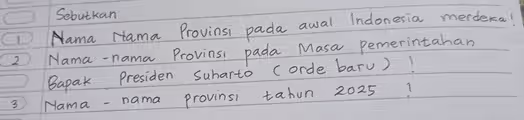 Sebutkan
1 Nama Nama Provinsi pada awal Indonesia merdeka!
2 Nama-nama Provinsi pada Masa pemerintahan
Bapak Presiden Suharto (orde baru) !
3 Nama - nama provinsi tahun 2025 !